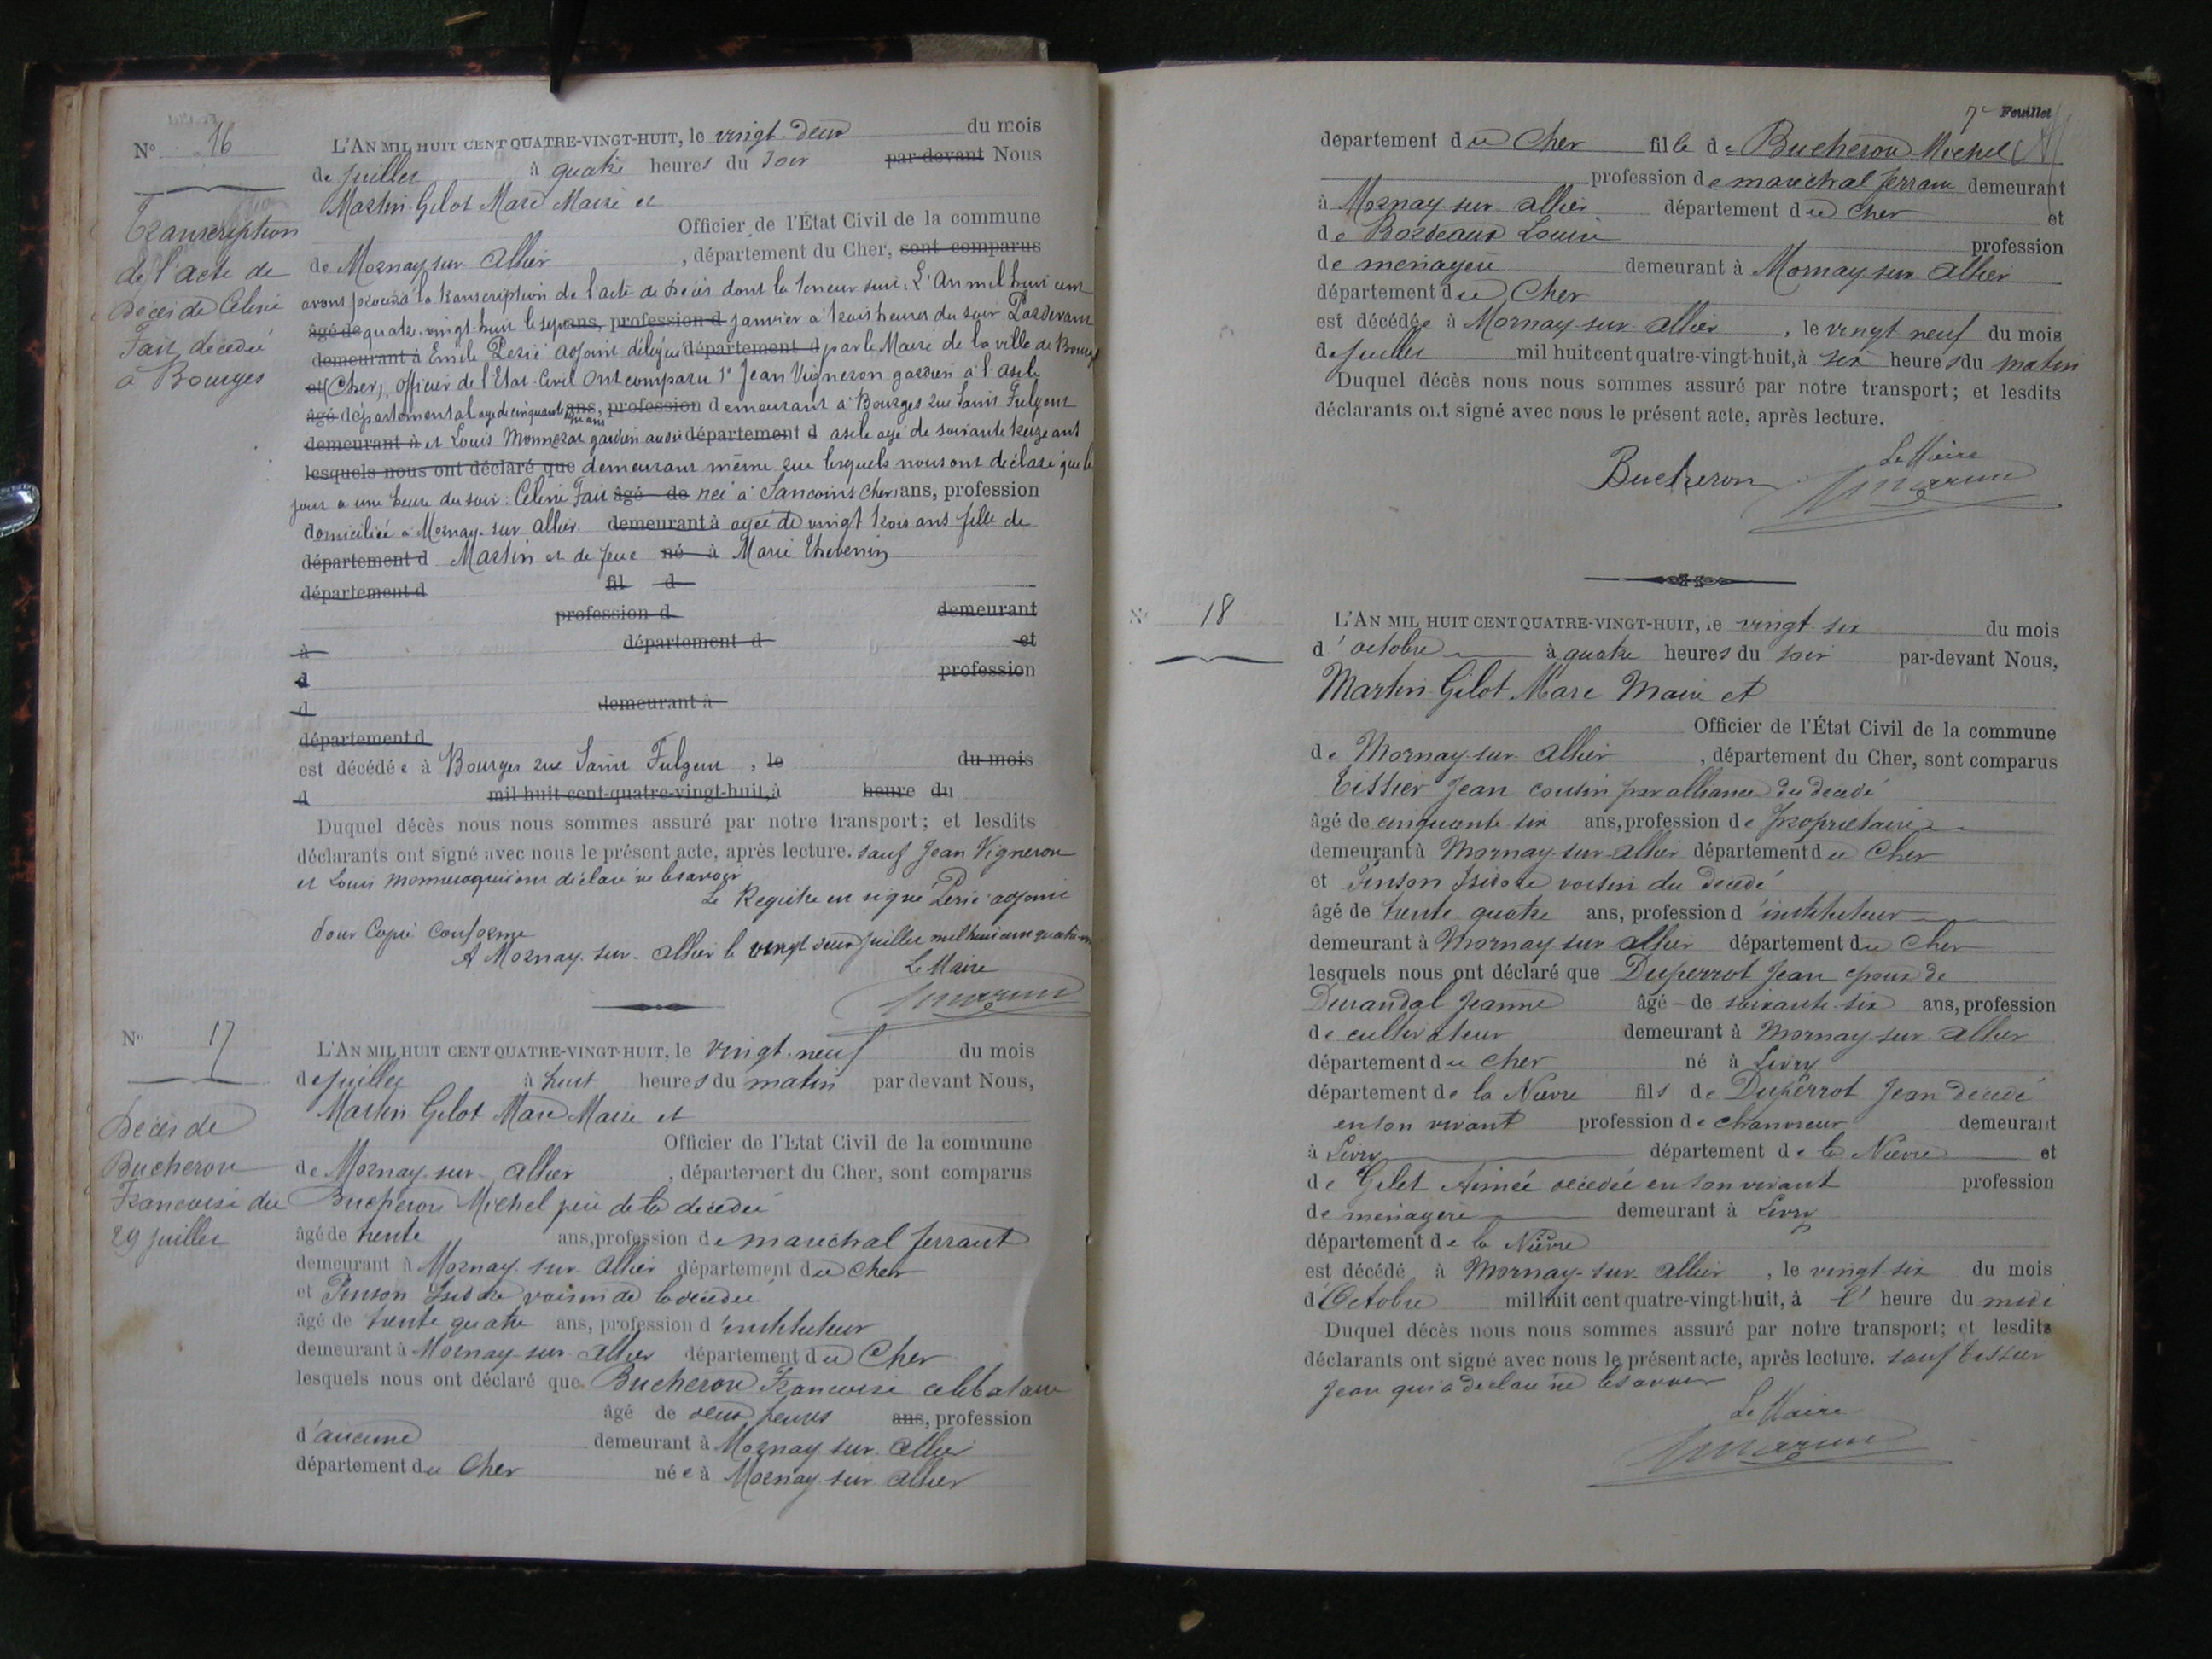 N° 16
Transcription
de l'acte de
décès de Celine
Fait décédée
à Bourges
L'AN MIL HUIT CENT QUATRE-VINGT-HUIT, le vingt deux du mois
de Juillet à quatre heures du soir par devant Nous
Martin Gilot Marc Maire et
Officier de l'État Civil de la commune
de Mornay-sur-Allier, département du Cher, sont comparus
avons procédé à la transcription de l'acte de décès dont la teneur suit: L'An mil huit cent
âgé de quatre-vingt-huit le sept ans, profession d janvier à trois heures du soir Pardevant
demeurant à Emile Perié adjoint délégué département d par le Maire de la ville de Bourges
et (Cher), officier de l'Etat-Civil ont comparu 1° Jean Vigneron gardien à l'asile
âgé départemental agé de cinquante ans, profession demeurant à Bourges rue Saint Fulgent
demeurant à et Louis gardien audit département d asile agé de soixante treize ans
lesquels nous ont déclaré que demeurant même rue lesquels nous ont déclaré que le
jour à une heure du soir: Celine Fait âgé de née à Sancoins Cher ans, profession
domiciliée à Mornay-sur-Allier demeurant à agée de vingt trois ans fille de
département d Martin et de feue né à Marie Thevenin
département d fil d
profession d demeurant
à département d et
d profession
d demeurant à
département d
est décédée à Bourges rue Saint Fulgent, le du mois
d mil huit cent-quatre-vingt-huit, à heure du
Duquel décès nous nous sommes assuré par notre transport; et lesdits
déclarants ont signé avec nous le présent acte, après lecture. sauf Jean Vigneron
et Louis qui ont déclaré ne le savoir
Le Registre est signé Perié adjoint
Pour Copie Conforme
A Mornay-sur-Allier le vingt deux juillet mil huit cent quatre
Le Maire
N° 17
Décès de
Bucheron
Francoise du
29 Juillet
L'AN MIL HUIT CENT QUATRE-VINGT-HUIT, le vingt-neuf du mois
de Juillet à huit heures du matin par devant Nous,
Martin Gilot Marc Maire et
Officier de l'Etat Civil de la commune
de Mornay-sur-Allier, département du Cher, sont comparus
Bucheron Michel père de la décédée
âgé de trente ans, profession de maréchal ferrant
demeurant à Mornay-sur-Allier département du Cher
et Pinson Isidore voisin de la décédée
âgé de trente quatre ans, profession d'instituteur
demeurant à Mornay-sur-Allier département du Cher
lesquels nous ont déclaré que Bucheron Francoise celibataire
âgé de deux heures ans, profession
d'aucune demeurant à Mornay-sur-Allier
département du Cher née à Mornay-sur-Allier
7e Feuillet
departement du Cher fille de Bucheron Michel
profession de maréchal ferrant demeurant
à Mornay-sur-Allier département du Cher et
de Bordeaux Louise profession
de menagère demeurant à Mornay-sur-Allier
département du Cher
est décédée à Mornay-sur-Allier, le vingt neuf du mois
de Juillet mil huit cent quatre-vingt-huit, à six heures du matin
Duquel décès nous nous sommes assuré par notre transport; et lesdits
déclarants ont signé avec nous le présent acte, après lecture.
Le Maire
Bucheron
N° 18
L'AN MIL HUIT CENT QUATRE-VINGT-HUIT, le vingt-six du mois
d'octobre à quatre heures du soir par-devant Nous,
Martin Gilot Marc Maire et
Officier de l'État Civil de la commune
de Mornay-sur-Allier, département du Cher, sont comparus
Tissier Jean cousin par alliance du décédé
âgé de cinquante six ans, profession de Propriétaire
demeurant à Mornay-sur-Allier département du Cher
et Pinson Isidore voisin du décédé
âgé de trente quatre ans, profession d'instituteur
demeurant à Mornay-sur-Allier département du Cher
lesquels nous ont déclaré que Duperrot Jean époux de
Durandal Jeanne âgé de soixante-six ans, profession
de cultivateur demeurant à Mornay-sur-Allier
département du Cher né à Livry
département de la Nièvre fils de Duperrot Jean décédé
en son vivant profession de chanvreur demeurant
à Livry département de la Nièvre et
de Gilet Aimée décédée en son vivant profession
de menagère demeurant à Livry
département de la Nièvre
est décédé à Mornay-sur-Allier, le vingt-six du mois
d'Octobre mil huit cent quatre-vingt-huit, à l'heure du midi
Duquel décès nous nous sommes assuré par notre transport; et lesdits
déclarants ont signé avec nous le présent acte, après lecture. sauf Tissier
Jean qui a déclaré ne le savoir
Le Maire